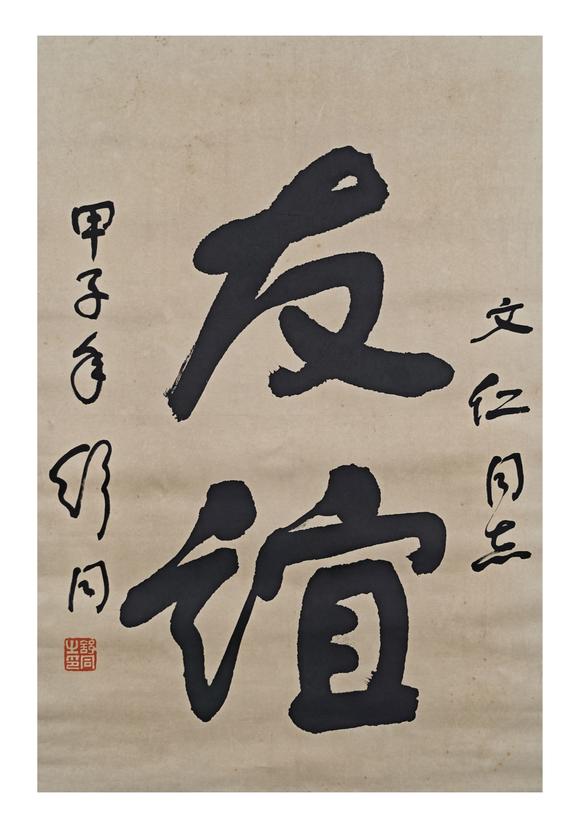 文仁同志
友谊
甲子年 舒同
舒同之印